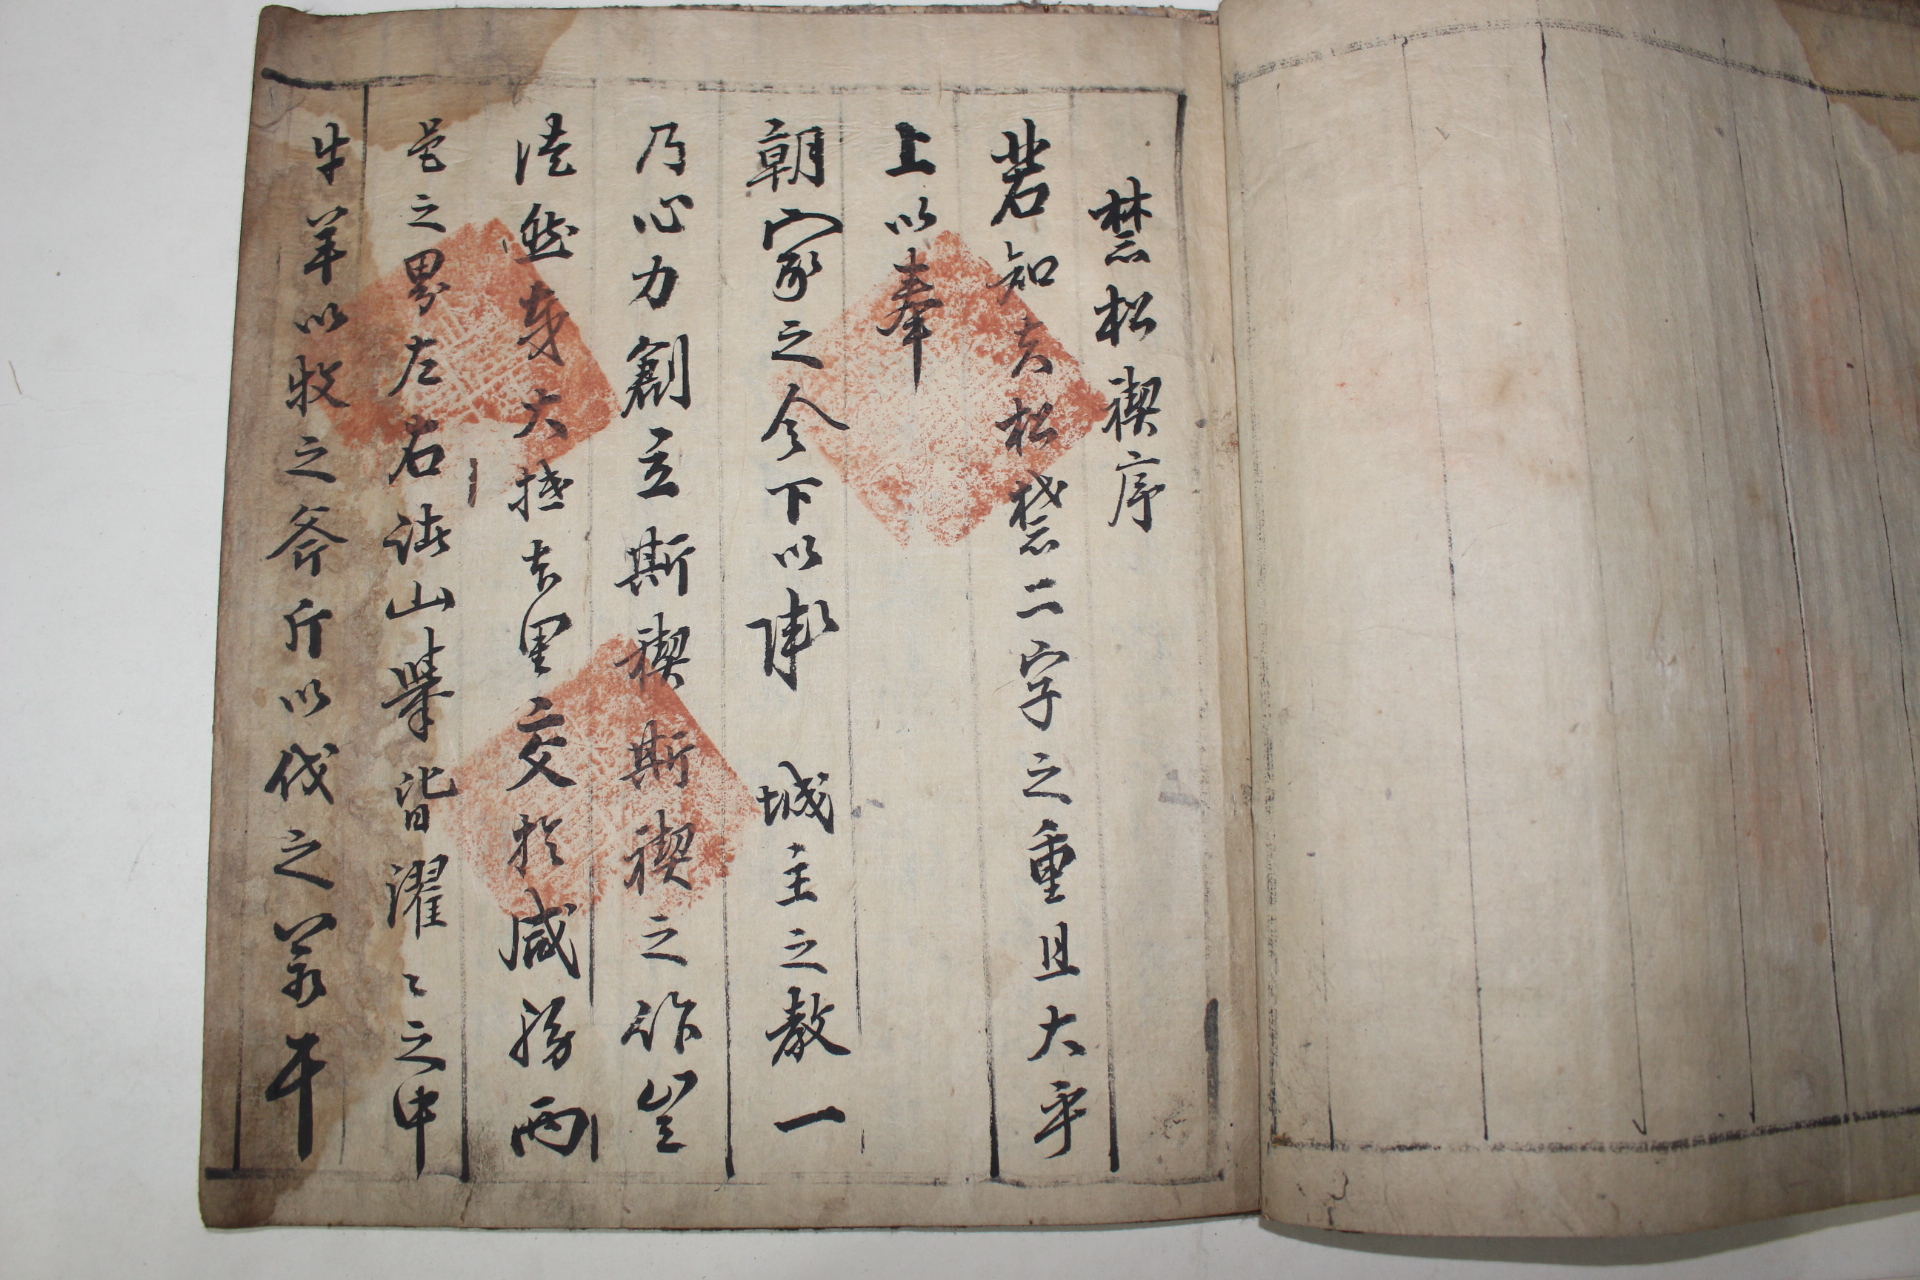 禁松禊序
若知夫松禁二字之重且大乎
上以奉
朝家之令下以承 城主之教一
乃心力創立斯禊斯禊之作豈
徒然哉大抵古里交於咸陽兩
邑之界左右諸山擧皆濯〻之中
牛羊以牧之斧斤以伐之若干